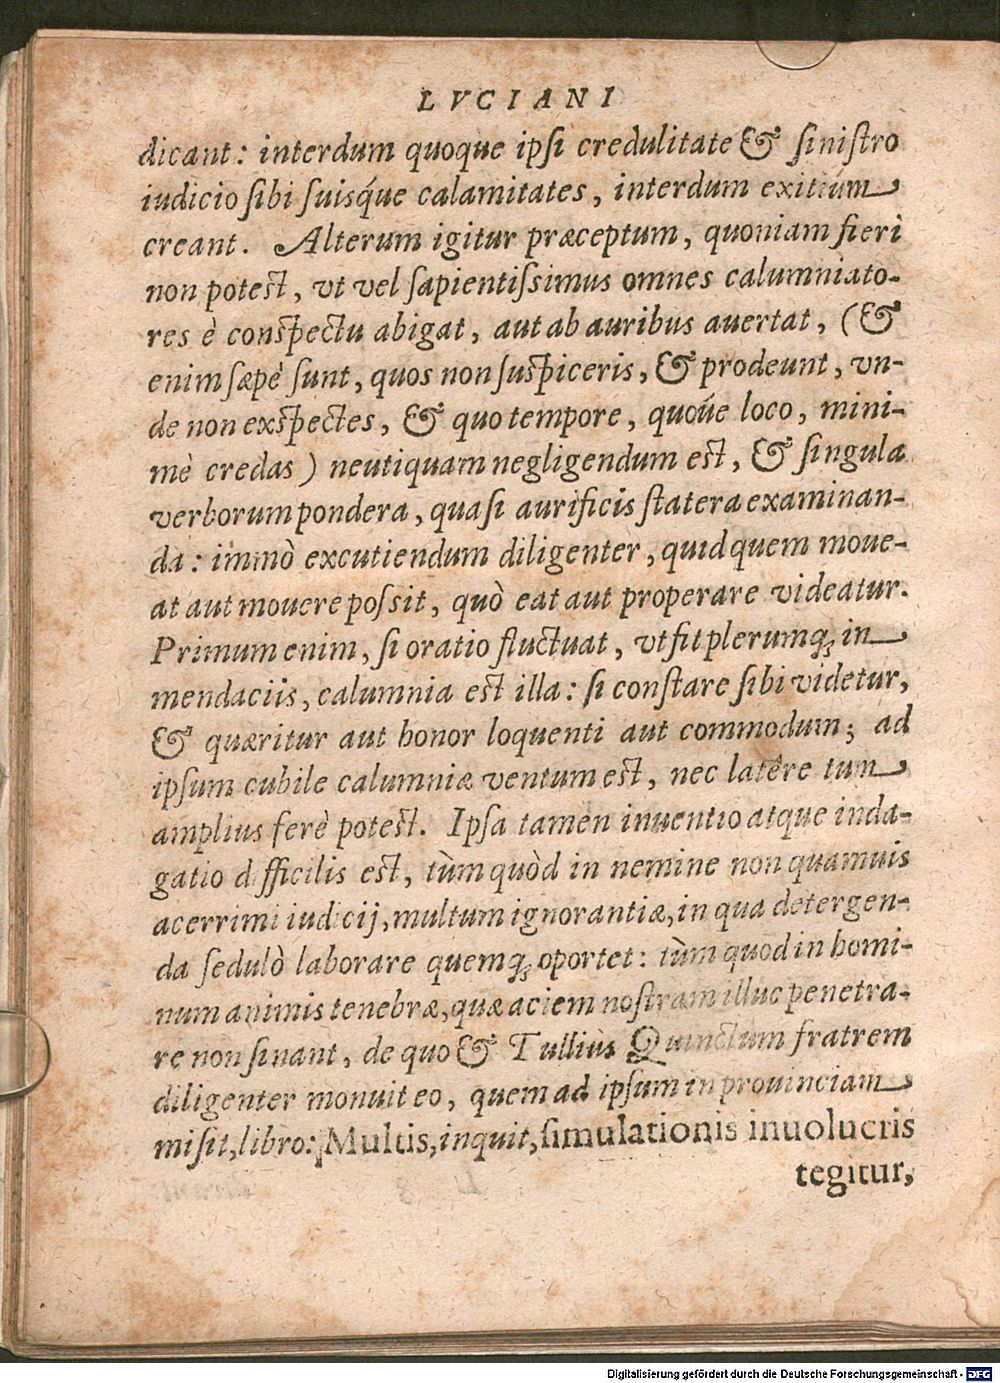 LVCIANI
dicant: interdum quoque ipsi credulitate & sinistro
iudicio sibi suisq́ue calamitates, interdum exitium
creant. Alterum igitur præceptum, quoniam fieri
non potest, vt vel sapientissimus omnes calumniato-
res è conspectu abigat, aut ab auribus auertat, (&
enim sæpè sunt, quos non suspiceris, & prodeunt, vn-
de non exspectes, & quo tempore, quoúe loco, mini-
mè credas) neutiquam negligendum est, & singula
verborum pondera, quasi aurificis statera examinan-
da: immò excutiendum diligenter, quid quem moue-
at aut mouere possit, quò eat aut properare videatur.
Primum enim, si oratio fluctuat, vt fit plerumq; in
mendaciis, calumnia est illa: si constare sibi videtur,
& quæritur aut honor loquenti aut commodum; ad
ipsum cubile calumniæ ventum est, nec latêre tum
amplius ferè potest. Ipsa tamen inuentio atque inda-
gatio difficilis est, tùm quòd in nemine non quamuis
acerrimi iudicij, multum ignorantiæ, in qua detergen-
da sedulò laborare quemq; oportet: tùm quod in homi-
num animis tenebræ, quæ aciem nostram illuc penetra-
re non sinant, de quo & Tullius Quinctum fratrem
diligenter monuit eo, quem ad ipsum in prouinciam
misit, libro: Multis, inquit, simulationis inuolucris
tegitur,
Digitalisierung gefördert durch die Deutsche Forschungsgemeinschaft - DFG